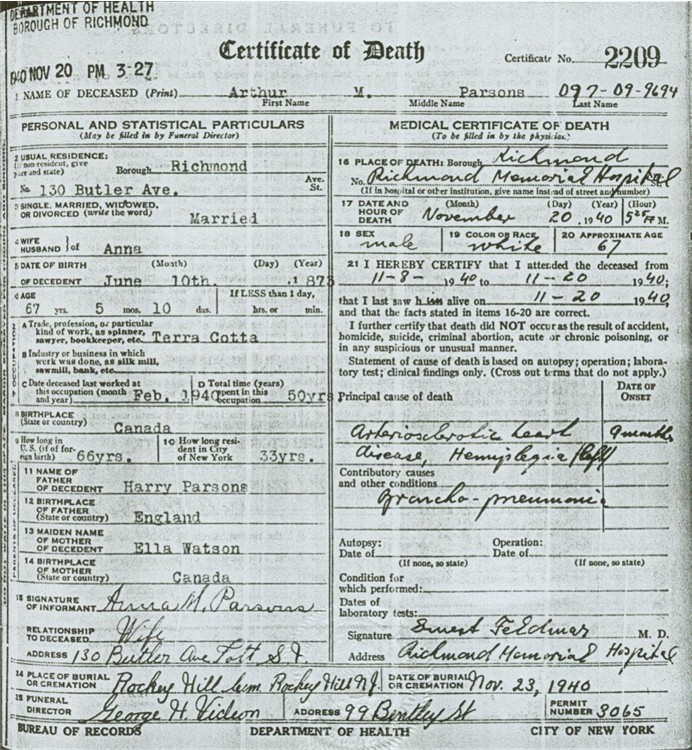 DEPARTMENT OF HEALTH
BOROUGH OF RICHMOND
1940 NOV 20 PM 3:27
Certificate of Death
Certificate No. 2209
1 NAME OF DECEASED (Print) Arthur M. Parsons 097-09-9694
First Name Middle Name Last Name
PERSONAL AND STATISTICAL PARTICULARS
(May be filled in by Funeral Director)
2 USUAL RESIDENCE:
(If non-resident, give
place and state) Borough Richmond
No. 130 Butler Ave. Ave. St.
3 SINGLE, MARRIED, WIDOWED,
OR DIVORCED (write the word) Married
4 WIFE
HUSBAND } of Anna
5 DATE OF BIRTH (Month) (Day) (Year)
OF DECEDENT June 10th. , 1873
6 AGE If LESS than 1 day,
67 yrs. 5 mos. 10 das. hrs. or min.
A Trade, profession, or particular
kind of work, as spinner,
sawyer, bookkeeper, etc. Terra Cotta
B Industry or business in which
work was done, as silk mill,
sawmill, bank, etc.
C Date deceased last worked at
this occupation (month
and year) Feb. 1940
D Total time (years)
spent in this
occupation 50yrs
8 BIRTHPLACE
(State or country) Canada
9 How long in
U. S. (if of for-
eign birth) 66yrs.
10 How long resi-
dent in City
of New York 33yrs.
11 NAME OF
FATHER
OF DECEDENT Harry Parsons
12 BIRTHPLACE
OF FATHER
(State or country) England
13 MAIDEN NAME
OF MOTHER
OF DECEDENT Ella Watson
14 BIRTHPLACE
OF MOTHER
(State or country) Canada
15 SIGNATURE
OF INFORMANT Anna M. Parsons
RELATIONSHIP
TO DECEASED Wife
ADDRESS 130 Butler Ave Tott S.I.
MEDICAL CERTIFICATE OF DEATH
(To be filled in by the physician)
16 PLACE OF DEATH: Borough Richmond
No. Richmond Memorial Hospital St.
(If in hospital or other institution, give name instead of street and number)
17 DATE AND
HOUR OF
DEATH (Month) (Day) (Year) (Hour)
November 20, 1940 M.
18 SEX male
19 COLOR OR RACE white
20 APPROXIMATE AGE 67
21 I HEREBY CERTIFY that I attended the deceased from
11-8- 1940 to 11-20 1940;
that I last saw him alive on 11-20 1940,
and that the facts stated in items 16-20 are correct.
I further certify that death did NOT occur as the result of accident,
homicide, suicide, criminal abortion, acute or chronic poisoning, or
in any suspicious or unusual manner.
Statement of cause of death is based on autopsy; operation; labora-
tory test; clinical findings only. (Cross out terms that do not apply.)
Principal cause of death
DATE OF
ONSET
Arteriosclerotic heart 9 months
disease, Hemiplegia (left)
Contributory causes
and other conditions
Broncho-pneumonia
Autopsy: Operation:
Date of Date of
(If none, so state) (If none, so state)
Condition for
which performed:
Dates of
laboratory tests:
Signature Ernest Feldmar M. D.
Address Richmond Memorial Hospital
24 PLACE OF BURIAL
OR CREMATION Rockey Hill Cem. Rockey Hill N.J.
DATE OF BURIAL
OR CREMATION Nov. 23, 1940
25 FUNERAL
DIRECTOR George H. ADDRESS 99 Bentley St
PERMIT
NUMBER 3065
BUREAU OF RECORDS DEPARTMENT OF HEALTH CITY OF NEW YORK